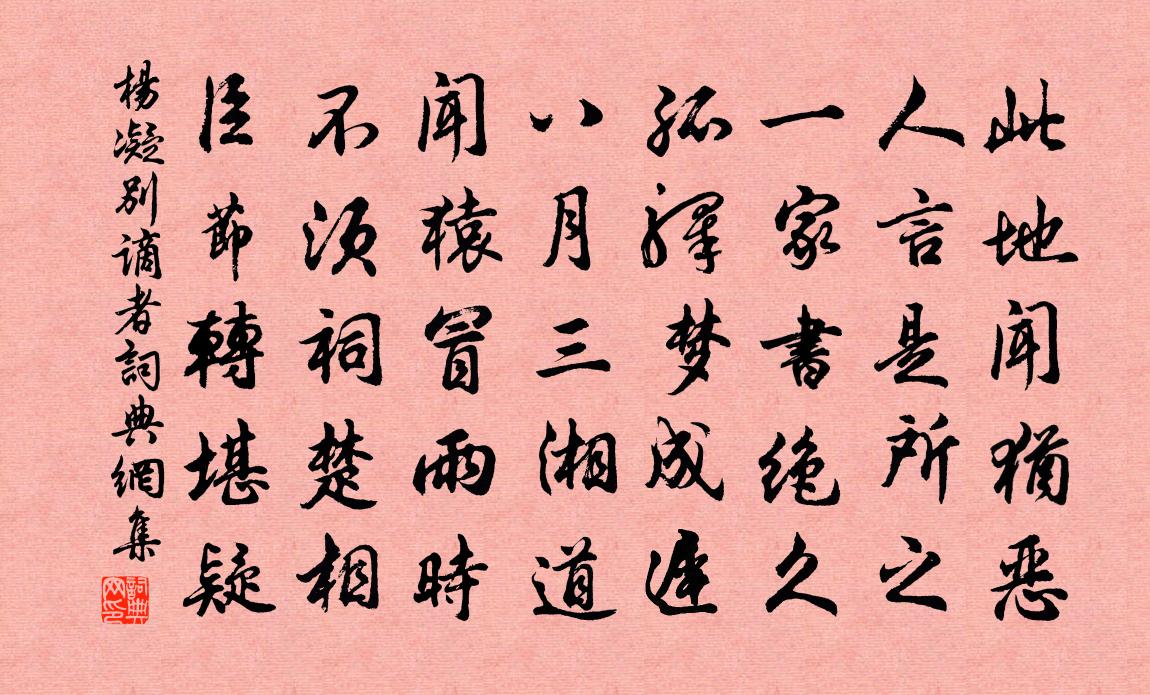 此地闻猶恶
人言是所之
一家書绝久
孤驛梦成遲
八月三湘道
闻猿冒雨時
不须祠楚相
臣節轉堪疑
楊凝别谪者詞典網集
詞典网印